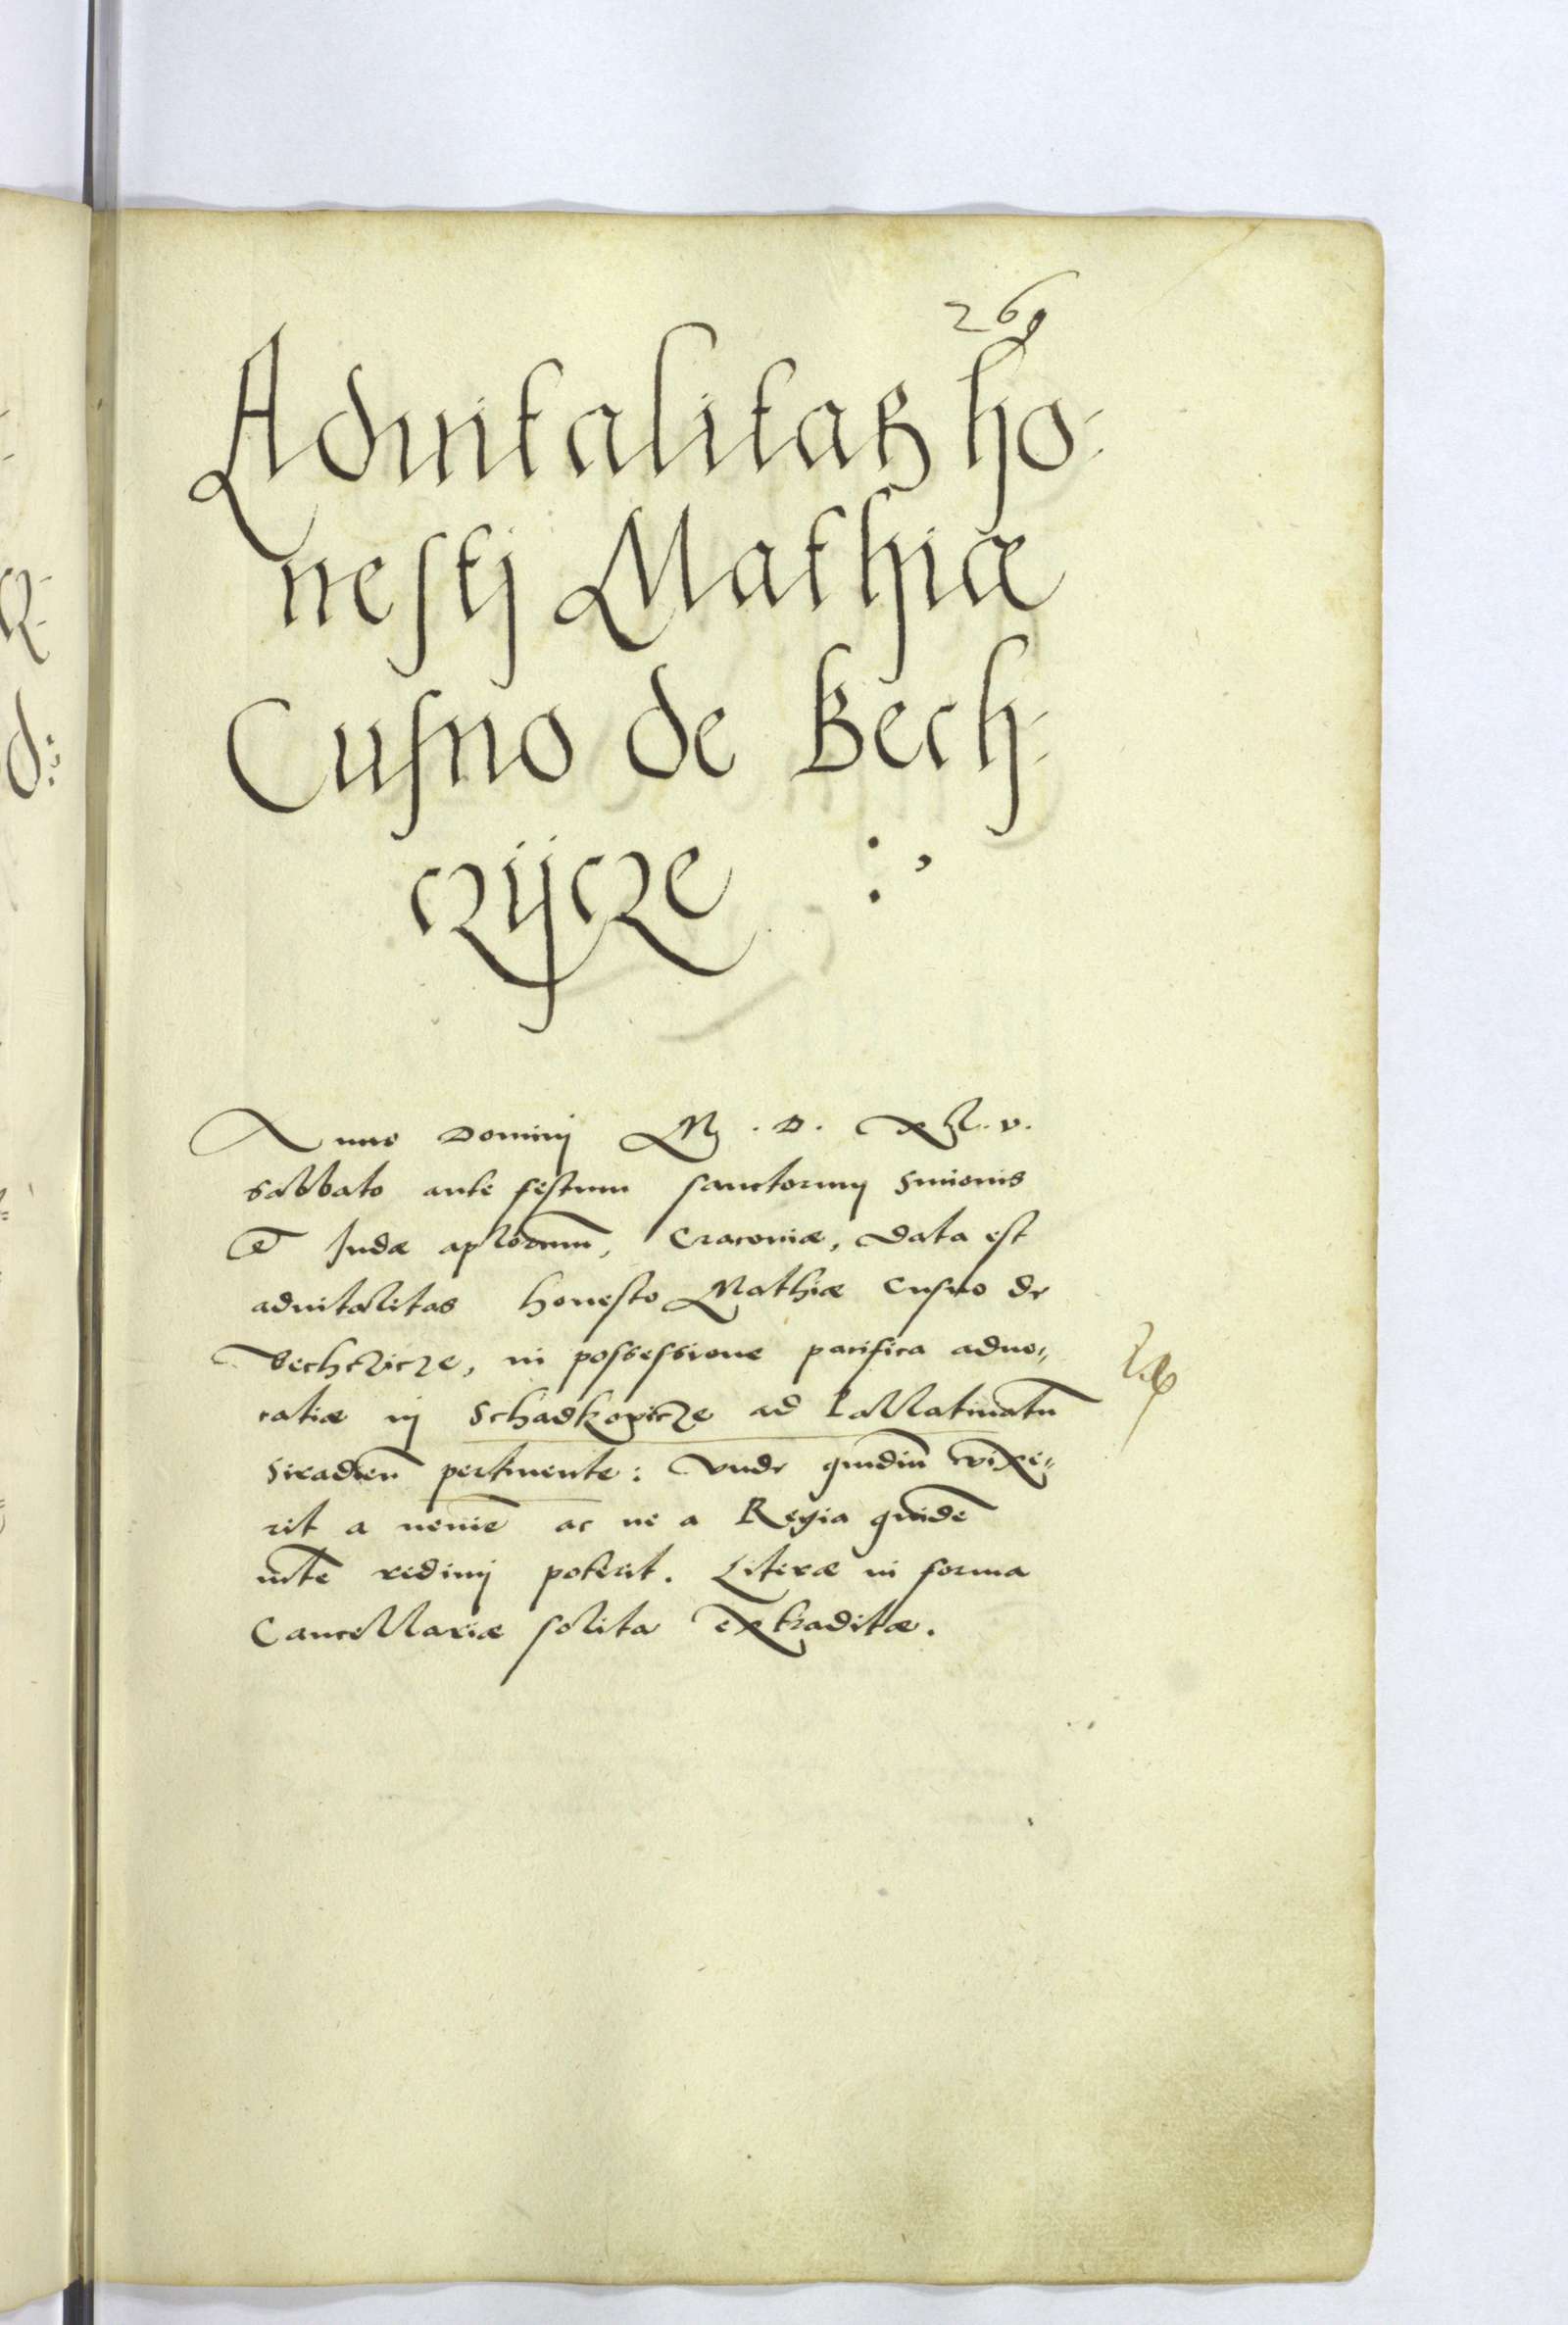 269
Aduitalitas ho-
nestj Mathiæ
Cusno de Bech-
czijcze :,
Anno Dominj M. D. XL. v.
Sabbato ante festum sanctorum Simonis
et Judæ aplorum, Cracouiæ, data est
aduitalitas honesto Mathiæ Cusno de
Bechczicze, in possessione pacifica aduo=
catiæ in Schadkovicze ad Pallatinatu
Siradien pertinente: Vnde quidiu vixe=
rit a nemie ac ne a Regia quide
mte redimj poterit. Literæ in forma
Cancellariæ solita extraditæ.